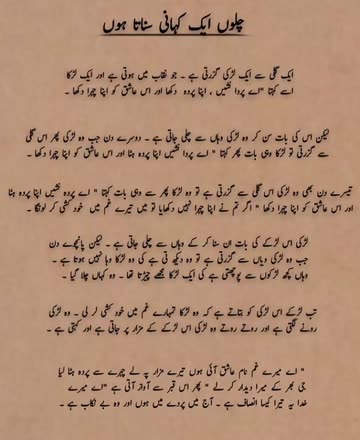 چلوں ایک کہانی سناتا ہوں
ایک گلی سے ایک لڑکی گزرتی ہے ۔ جو نقاب میں ہوتی ہے اور ایک لڑکا
اسے کہتا "اے پردا نشیں ، اپنا پردہ ہٹا اور اس عاشق کو اپنا چہرا دکھا ۔
لیکن اس کی بات سن کر وہ لڑکی وہاں سے چلی جاتی ہے ۔ دوسرے دن جب وہ لڑکی پھر اس گلی
سے گزرتی تو لڑکا وہی بات پھر کہتا " اے پردا نشیں اپنا پردہ ہٹا اور اس عاشق کو اپنا چہرا دکھا ۔
تیسرے دن بھی وہ لڑکی اس گلی سے گزرتی ہے تو وہ لڑکا پھر سے وہی بات کہتا " اے پردہ نشیں اپنا پردہ ہٹا
اور اس عاشق کو اپنا چہرا دکھا " اگر تم نے اپنا چہرا نہیں دکھایا تو میں تیرے غم میں خود کشی کر لونگا ۔
لڑکی اس لڑکے کی بات ان سنا کر کے وہاں سے چلی جاتی ہے ۔ لیکن پانچوے دن
جب وہ لڑکی وہاں سے گزرتی ہے تو وہ دیکھ تی ہے کی وہ لڑکا وہا نہیں ہوتا ہے ۔
وہاں کچھ لڑکوں سے پوچھتی ہے کی ایک لڑکا مجھے چیڑتا تھا ۔ وہ کہاں چلا گیا ۔
تب لڑکے اس لڑکی کو بتاتے ہے کہ وہ لڑکا تمہارے غم میں خود کشی کر لی ۔ وہ لڑکی
رونے لگتی ہے اور روتے روتے وہ لڑکی اس لڑکے کے مزار پر جاتی ہے اور کہتی ہے ۔
" اے میرے غم نام عاشق آئی ہوں تیرے مزار پہ لے چہرے سے پردہ ہٹا لیا
جی بھر کے میرا دیدار کر لے " پھر اس قبر سے آواز آتی ہے "اے میرے
خدا یہ تیرا کیسا انصاف ہے ۔ آج میں پردے میں ہوں اور وہ بے نقاب ہے ۔